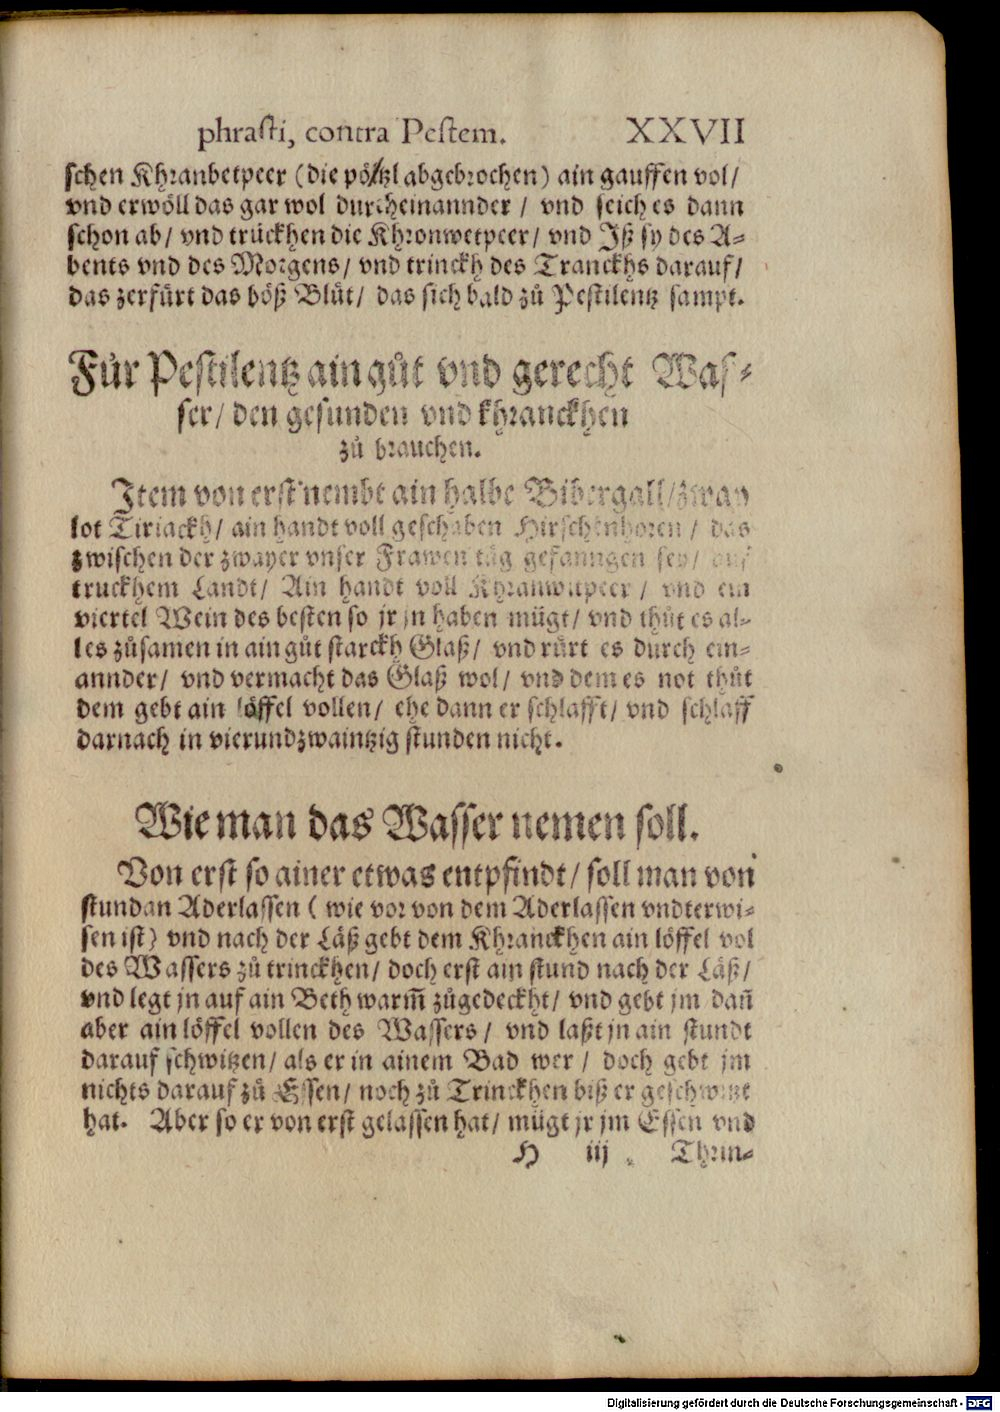 phrasti, contra Pestem. XXVII
schen Khranbetpeer (die pötzl abgebrochen) ain gauffen vol/
vnd erwöll das gar wol durcheinannder / vnd seich es dann
schon ab/ vnd trückhen die Khronwetpeer/ vnd Jß sy des A=
bents vnd des Morgens/ vnd trinckh des Tranckhs darauf/
das zerfürt das böß Blůt/ das sich bald zů Pestilentz sampt.
Für Pestilentz ain gůt vnd gerecht Was=
ser/ den gesunden vnd khranckhen
zů brauchen.
Jtem von erst nembt ain halbe Bibergall/ zway
lot Tiriackh/ ain handt voll geschaben Hirschenhoren / das
zwischen der zwayer vnser Frawen täg gefanngen sey/ auf
truckhem Landt/ Ain handt voll Khranwitpeer / vnd ein
viertel Wein des besten so jr jn haben mügt/ vnd thůt es al=
les zůsamen in ain gůt starckh Glaß/ vnd rürt es durch ein=
annder/ vnd vermacht das Glaß wol/ vnd dem es not thůt
dem gebt ain löffel vollen/ ehe dann er schlafft/ vnd schlaff
darnach in vierundzwaintzig stunden nicht.
Wie man das Wasser nemen soll.
Von erst so ainer etwas entpfindt/ soll man von
stundan Aderlassen ( wie vor von dem Aderlassen vndterwi=
sen ist) vnd nach der Läß gebt dem Khranckhen ain löffel vol
des Wassers zů trinckhen/ doch erst ain stund nach der Läß/
vnd legt jn auf ain Beth warm̄ zůgedeckht/ vnd gebt jm dañ
aber ain löffel vollen des Wassers / vnd laßt jn ain stundt
darauf schwitzen/ als er in ainem Bad wer / doch gebt jm
nichts darauf zů Essen/ noch zů Trinckhen biß er geschwitzt
hat. Aber so er von erst gelassen hat/ mügt jr jm Essen vnd
H iij Thrin=
Digitalisierung gefördert durch die Deutsche Forschungsgemeinschaft - DFG